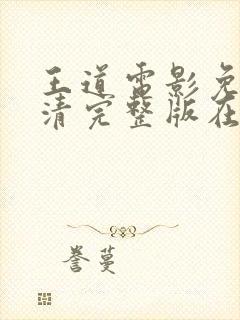 王道电影免
清完整版在
誉蔓